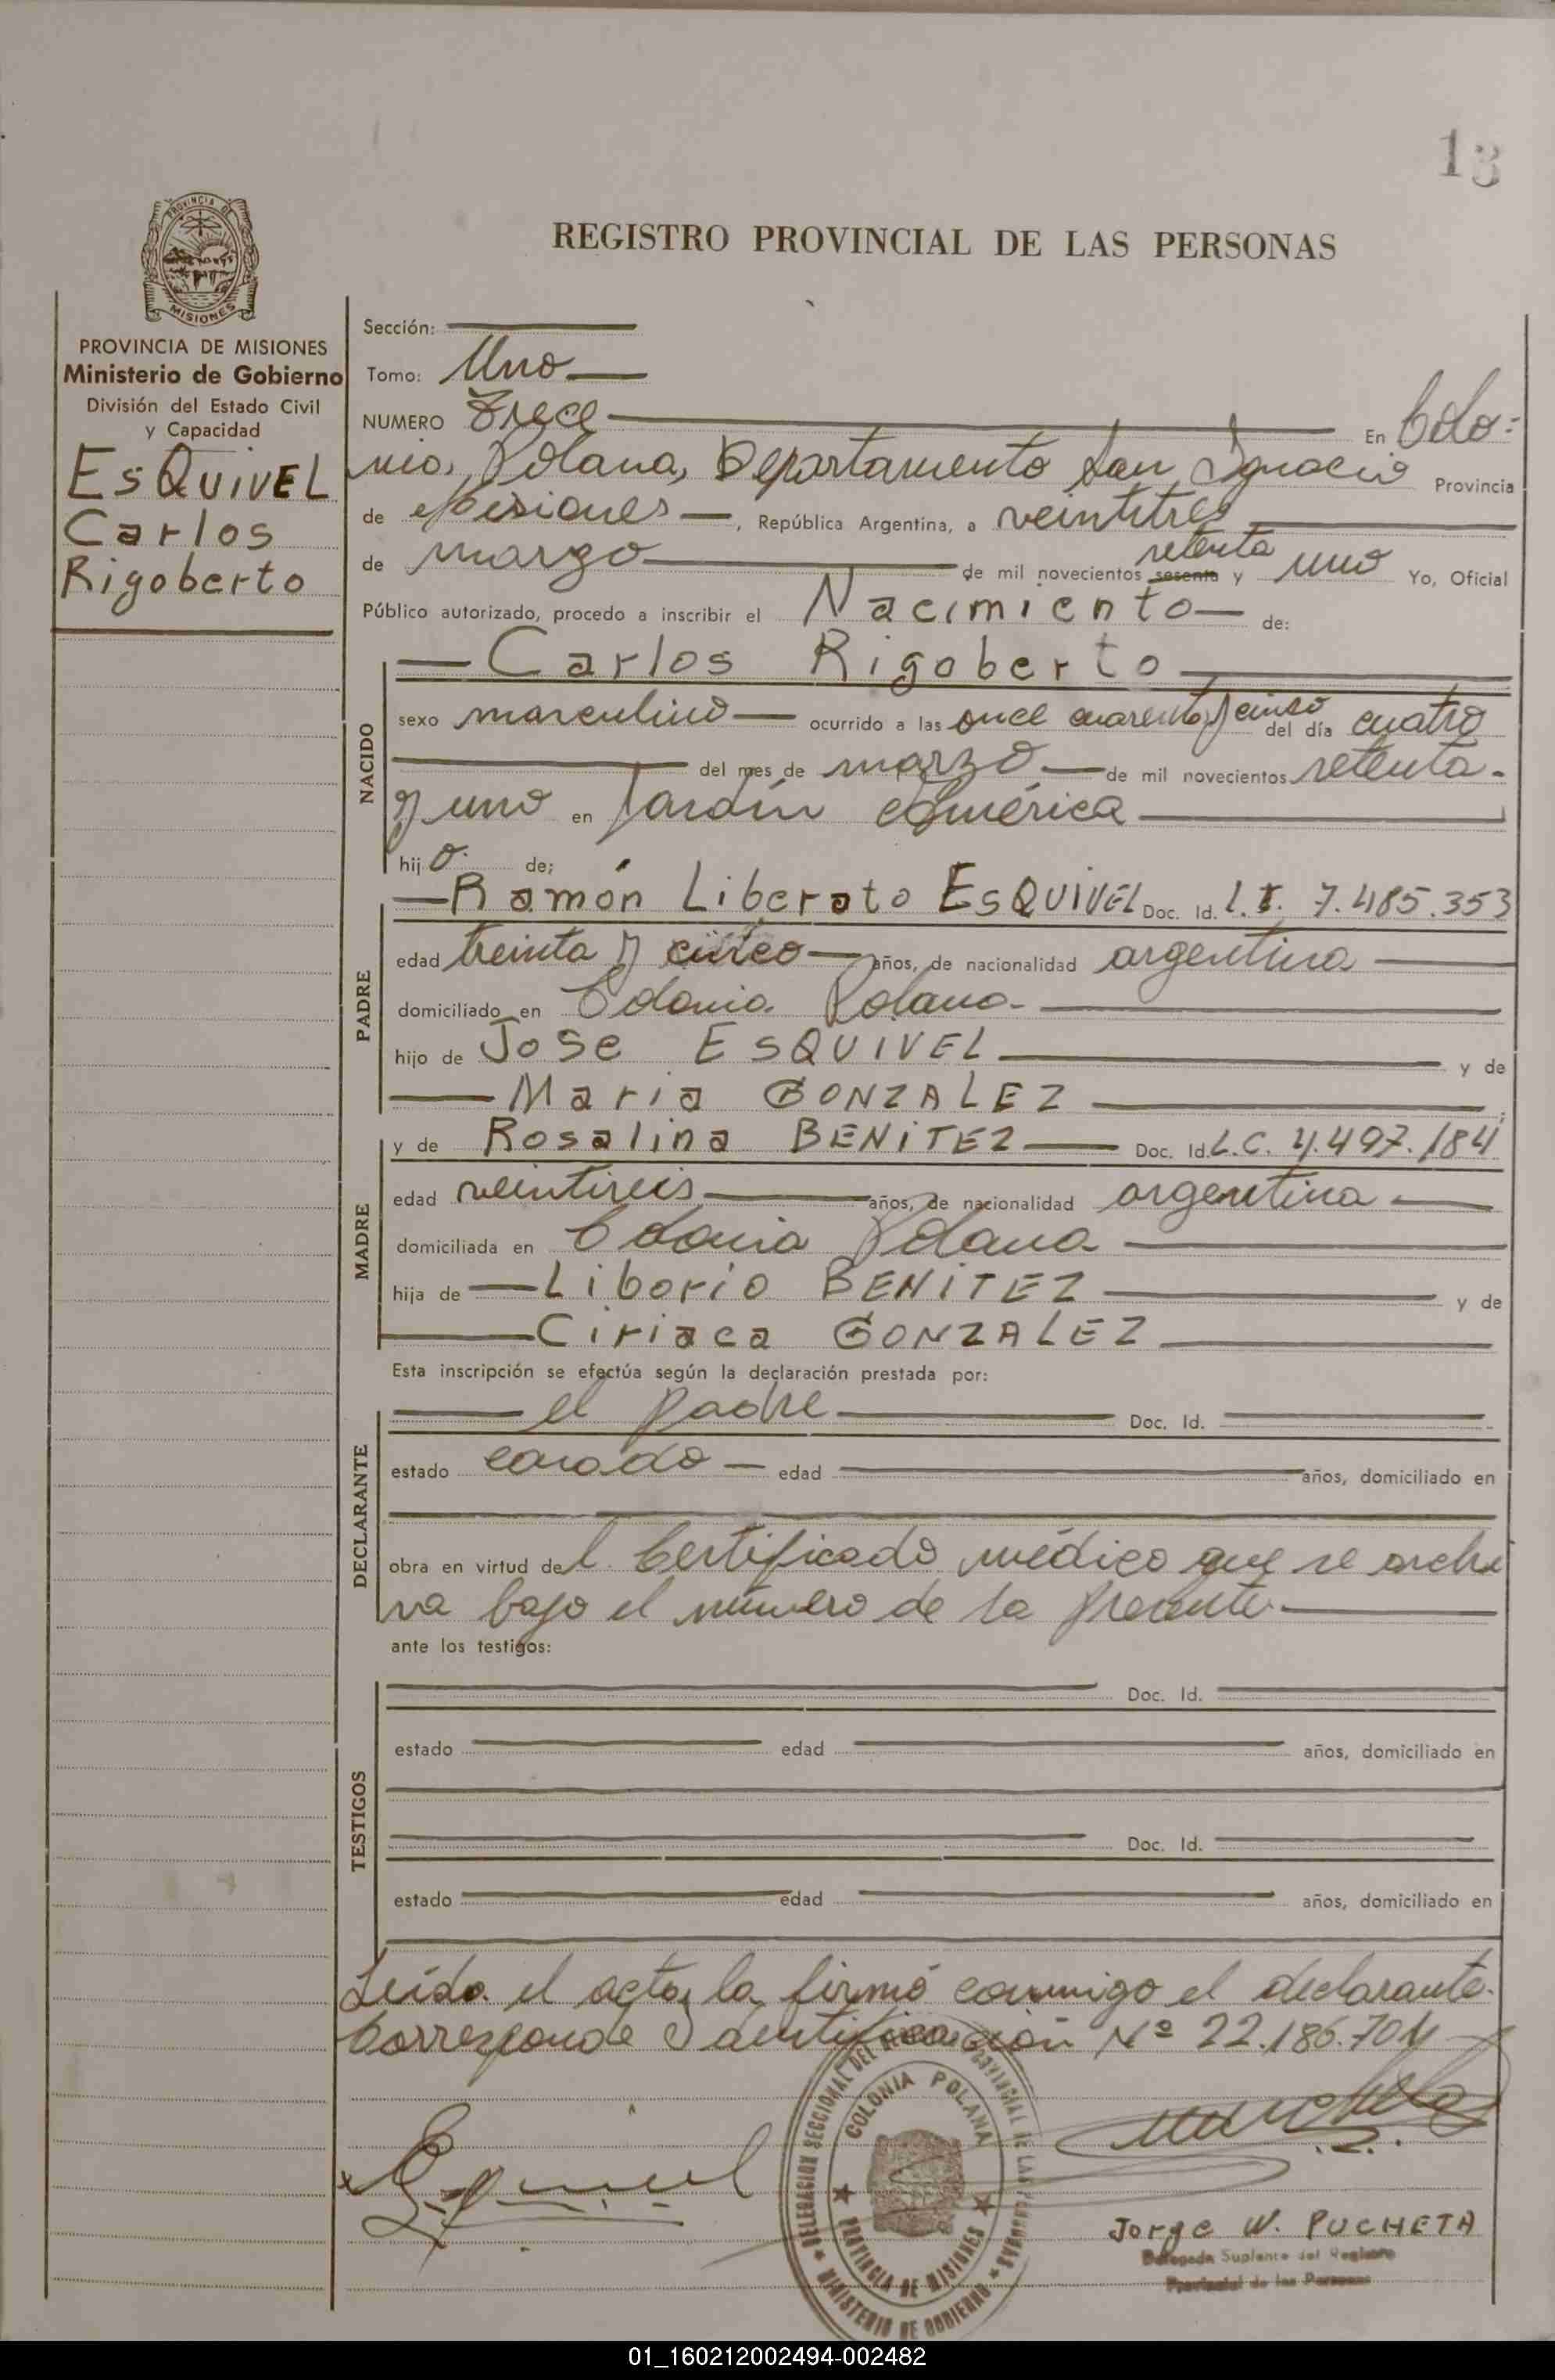 13
PROVINCIA DE
MISIONES
REGISTRO PROVINCIAL DE LAS PERSONAS
PROVINCIA DE MISIONES
Ministerio de Gobierno
División del Estado Civil
y Capacidad
EsQUIVEL
Carlos
Rigoberto
Sección:
Tomo: Uno
NUMERO Trece En Colo=
nia, Polana, Departamento San Ignacio Provincia
de Misiones, República Argentina, a veintitres
de marzo de mil novecientos sesenta setenta y uno Yo, Oficial
Público autorizado, procedo a inscribir el Nacimiento de:
Carlos Rigoberto
NACIDO
sexo masculino ocurrido a las once cuarenta y cinco del día cuatro
del mes de marzo de mil novecientos setenta-
y uno en Jardín América
hij o. de;
PADRE
Ramón Liberato EsQUIVEL Doc. Id. L.I. 7.485.353
edad treinta y cinco años, de nacionalidad argentina
domiciliado en Colonia Polana-
hijo de Jose EsQUIVEL y de
Maria GONZALEZ
MADRE
y de Rosalina BENITEZ Doc. Id. L.C. 4.497.184
edad veintiseis años, de nacionalidad argentina
domiciliada en Colonia Polana
hija de Liborio BENITEZ y de
Ciriaca GONZALEZ
Esta inscripción se efectúa según la declaración prestada por:
DECLARANTE
el padre Doc. Id.
estado casado edad años, domiciliado en
obra en virtud del Certificado médico que se archi
va bajo el número de la presente.
ante los testigos:
TESTIGOS
Doc. Id.
estado edad años, domiciliado en
Doc. Id.
estado edad años, domiciliado en
Leída el acta, la firmó conmigo el declarante.
Corresponde Identificación Nº 22.186.704
Esquivel
DELEGACION SECCIONAL DEL REGISTRO PROVINCIAL DE LAS PERSONAS
COLONIA POLANA
PROVINCIA DE MISIONES
MINISTERIO DE GOBIERNO
Jorge W. PUCHETA
Delegado Suplente del Registro
Provincial de las Personas
01_160212002494-002482